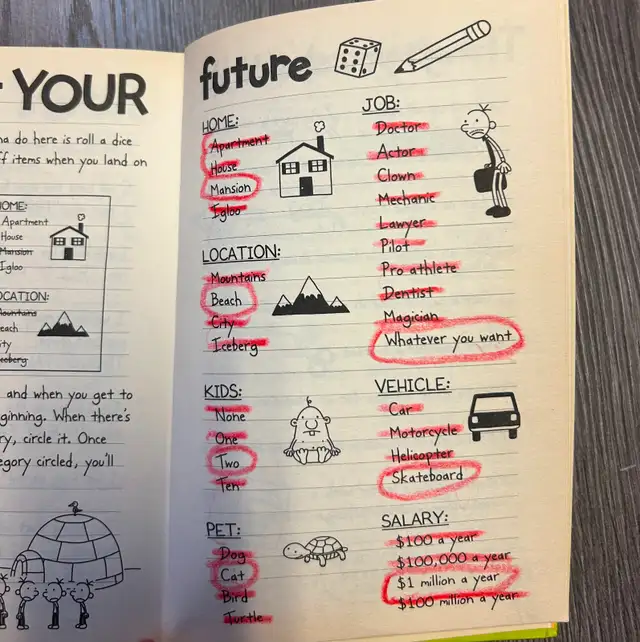 YOUR
na do here is roll a dice
ff items when you land on
HOME:
Apartment
House
Mansion
Igloo
OCATION:
ountains
each
ity
ceberg
and when you get to
ginning. When there's
ry, circle it. Once
egory circled, you'll
future
HOME:
Apartment
House
Mansion
Igloo
LOCATION:
Mountains
Beach
City
Iceberg
KIDS:
None
One
Two
Ten
PET:
Dog
Cat
Bird
Turtle
JOB:
Doctor
Actor
Clown
Mechanic
Lawyer
Pilot
Pro athlete
Dentist
Magician
Whatever you want
VEHICLE:
Car
Motorcycle
Helicopter
Skateboard
SALARY:
$100 a year
$100,000 a year
$1 million a year
$100 million a year